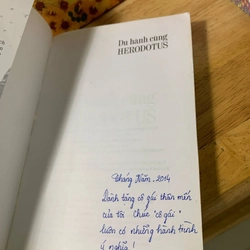 Du hành cùng
HERODOTUS
Tháng Năm, 2014
Dành tặng cô gái thân mến
của tôi. Chúc "cô gái"
luôn có những hành trình
ý nghĩa!